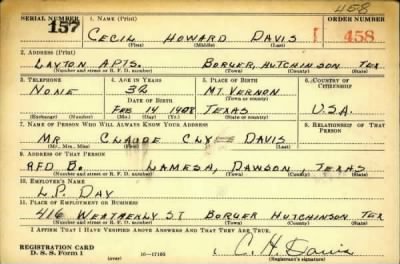 458
SERIAL NUMBER 1. NAME (Print) ORDER NUMBER
157 CECIL HOWARD DAVIS 458
(First) (Middle) (Last)
2. ADDRESS (Print)
LAYTON APTS. BORGER, HUTCHINSON TEX
(Number and street or R. F. D. number) (Town) (County) (State)
3. TELEPHONE 4. AGE IN YEARS 5. PLACE OF BIRTH 6. COUNTRY OF CITIZENSHIP
NONE 32 MT. VERNON
DATE OF BIRTH (Town or county)
FEB 14 1908 TEXAS U.S.A.
(Exchange) (Number) (Mo.) (Day) (Yr.) (State or country)
7. NAME OF PERSON WHO WILL ALWAYS KNOW YOUR ADDRESS 8. RELATIONSHIP OF THAT PERSON
MR CLAUDE CLYDE DAVIS
(Mr., Mrs., Miss) (First) (Middle) (Last)
9. ADDRESS OF THAT PERSON
RFD B. LAMESA, DAWSON TEXAS
(Number and street or R. F. D. number) (Town) (County) (State)
10. EMPLOYER'S NAME
L.P. DAY
11. PLACE OF EMPLOYMENT OR BUSINESS
416 WEATHERLY S.T BORGER HUTCHINSON TEX
(Number and street or R. F. D. number) (Town) (County) (State)
I AFFIRM THAT I HAVE VERIFIED ABOVE ANSWERS AND THAT THEY ARE TRUE.
REGISTRATION CARD
D. S. S. Form 1 (over) 16—17105 C. H. Davis
(Registrant's signature)